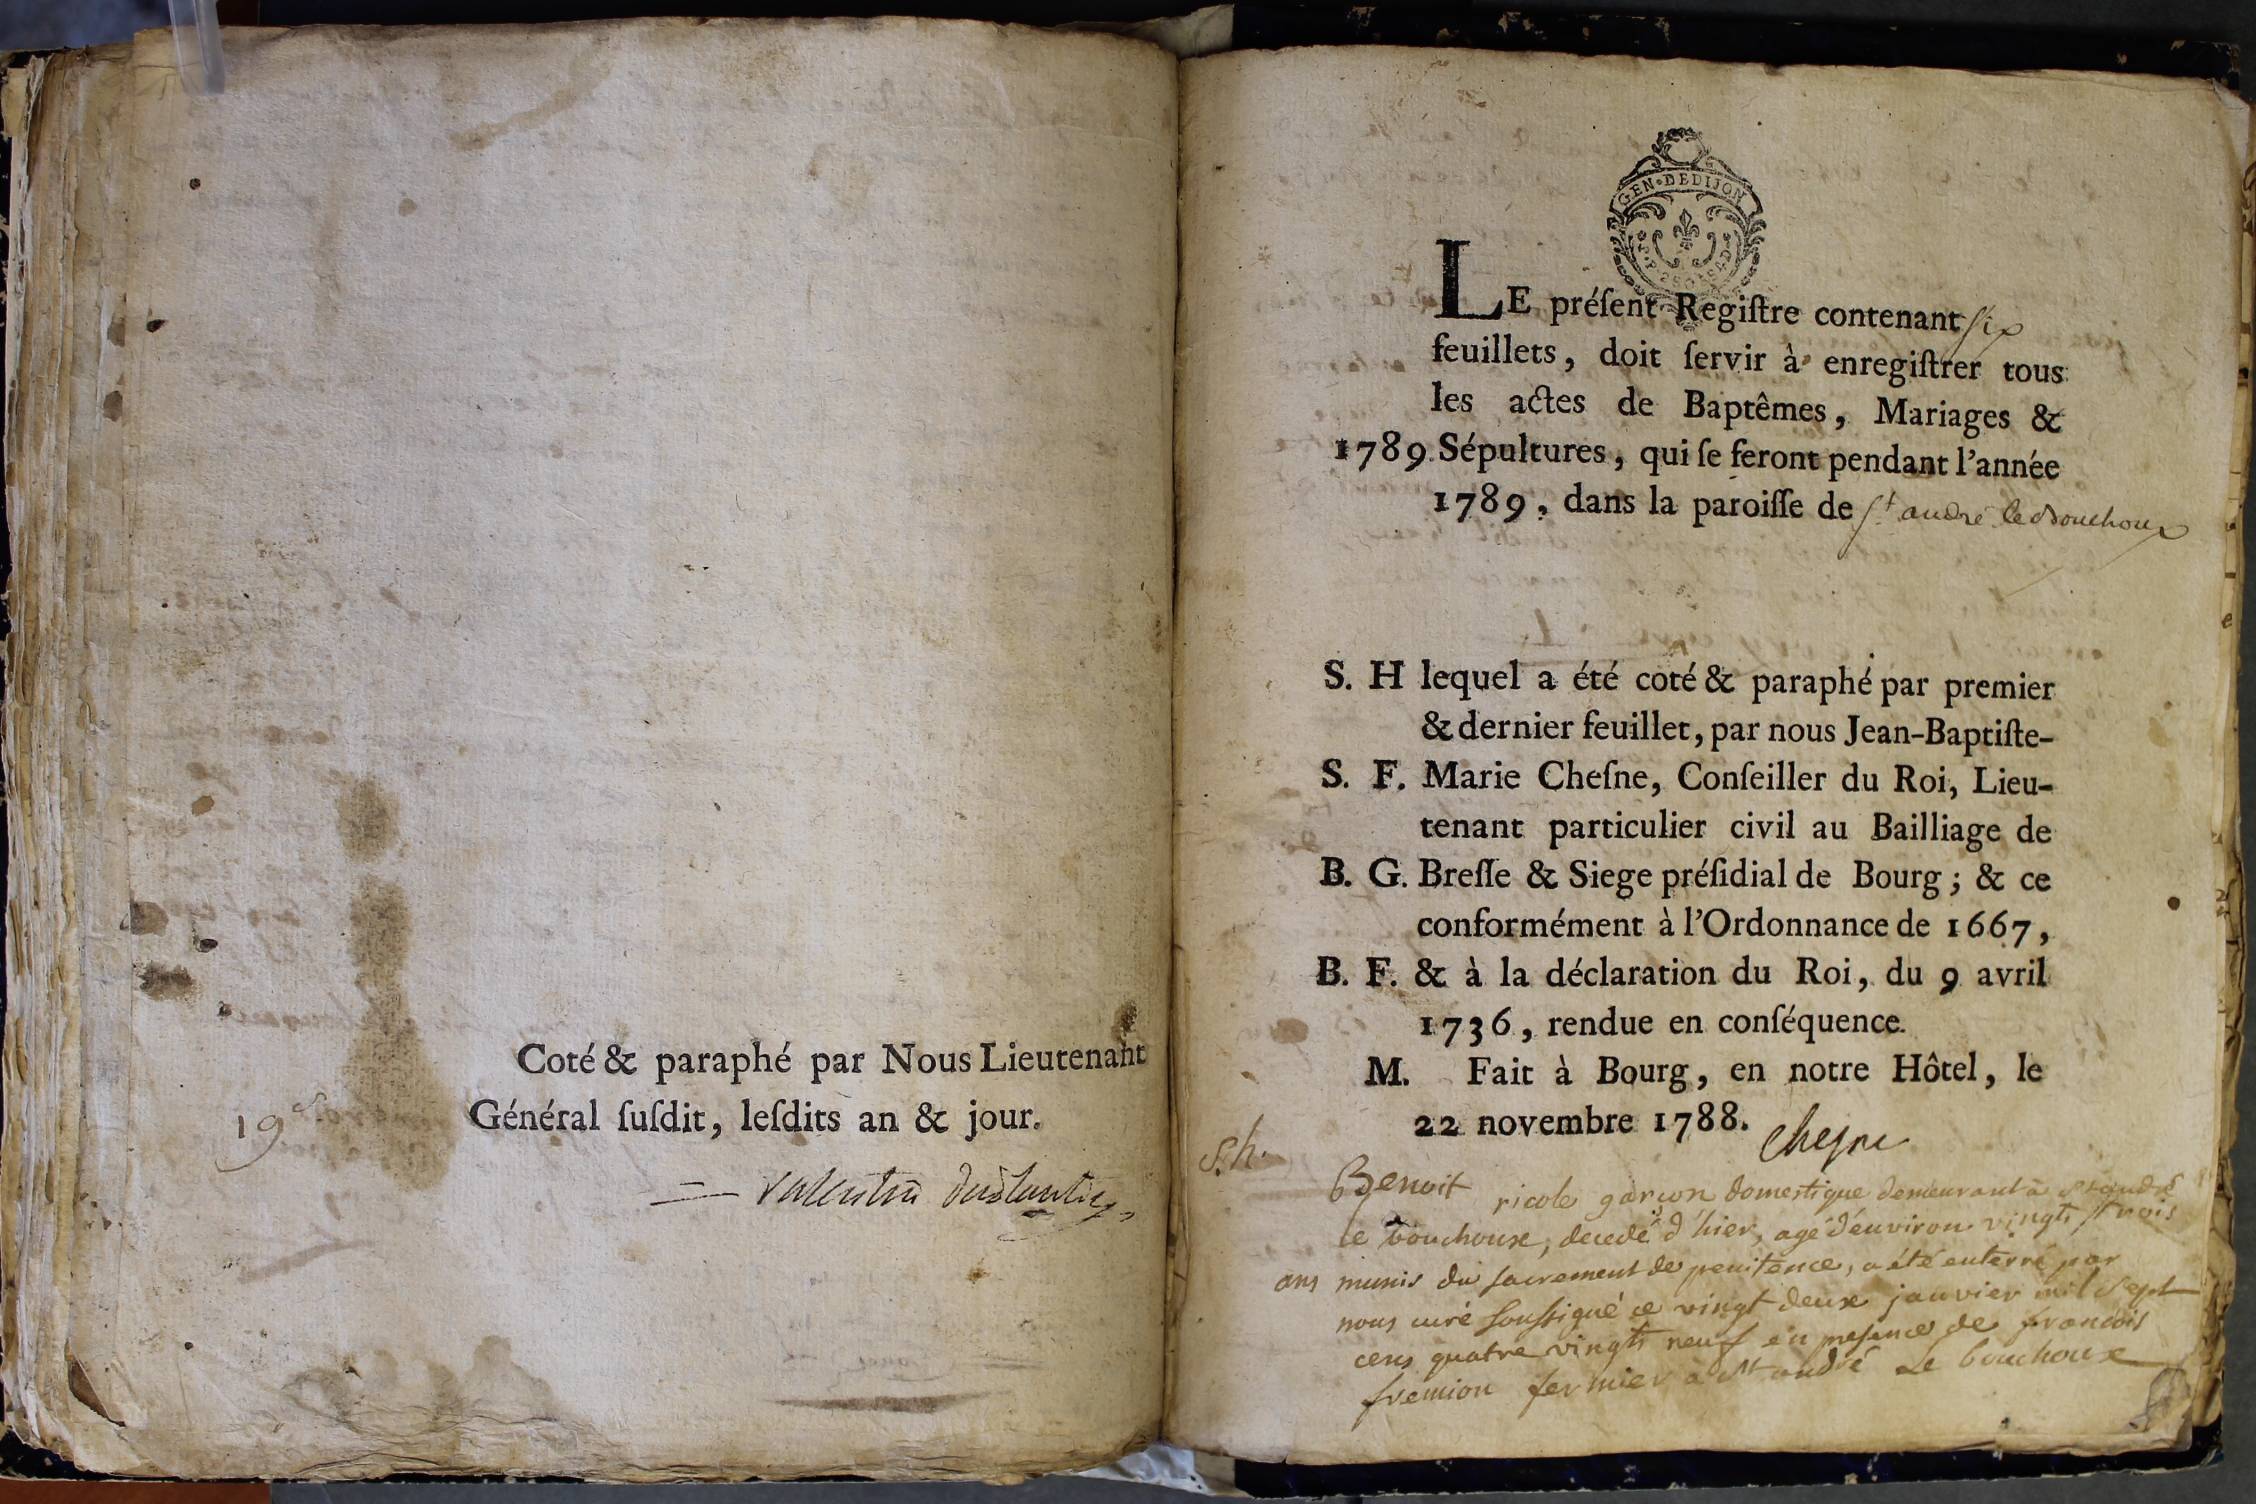 Coté & paraphé par Nous Lieutenant
Général ſuſdit, leſdits an & jour.
19
GEN. DE DIJON
LE préſent Regiſtre contenant six
feuillets, doit ſervir à enregiſtrer tous
les actes de Baptêmes, Mariages &
1789 Sépultures, qui ſe feront pendant l'année
1789, dans la paroiſſe de St andré le Bouchoux
S. H lequel a été coté & paraphé par premier
& dernier feuillet, par nous Jean-Baptiſte-
S. F. Marie Cheſne, Conſeiller du Roi, Lieu-
tenant particulier civil au Bailliage de
B. G. Breſſe & Siege préſidial de Bourg ; & ce
conformément à l'Ordonnance de 1667,
B. F. & à la déclaration du Roi, du 9 avril
1736, rendue en conſéquence.
M. Fait à Bourg, en notre Hôtel, le
22 novembre 1788.
Chesne
S. h.
Benoit ricole garçon domestique demeurant à St andré
le bouchoux, decedé d'hier, agé d'environ vingt trois
ans munis du sacrement de penitence, a été enterré par
nous curé soussigné ce vingt deux janvier mil sept
cens quatre vingt neuf en presence de francois
fremion fermier a St andré Le bouchoux